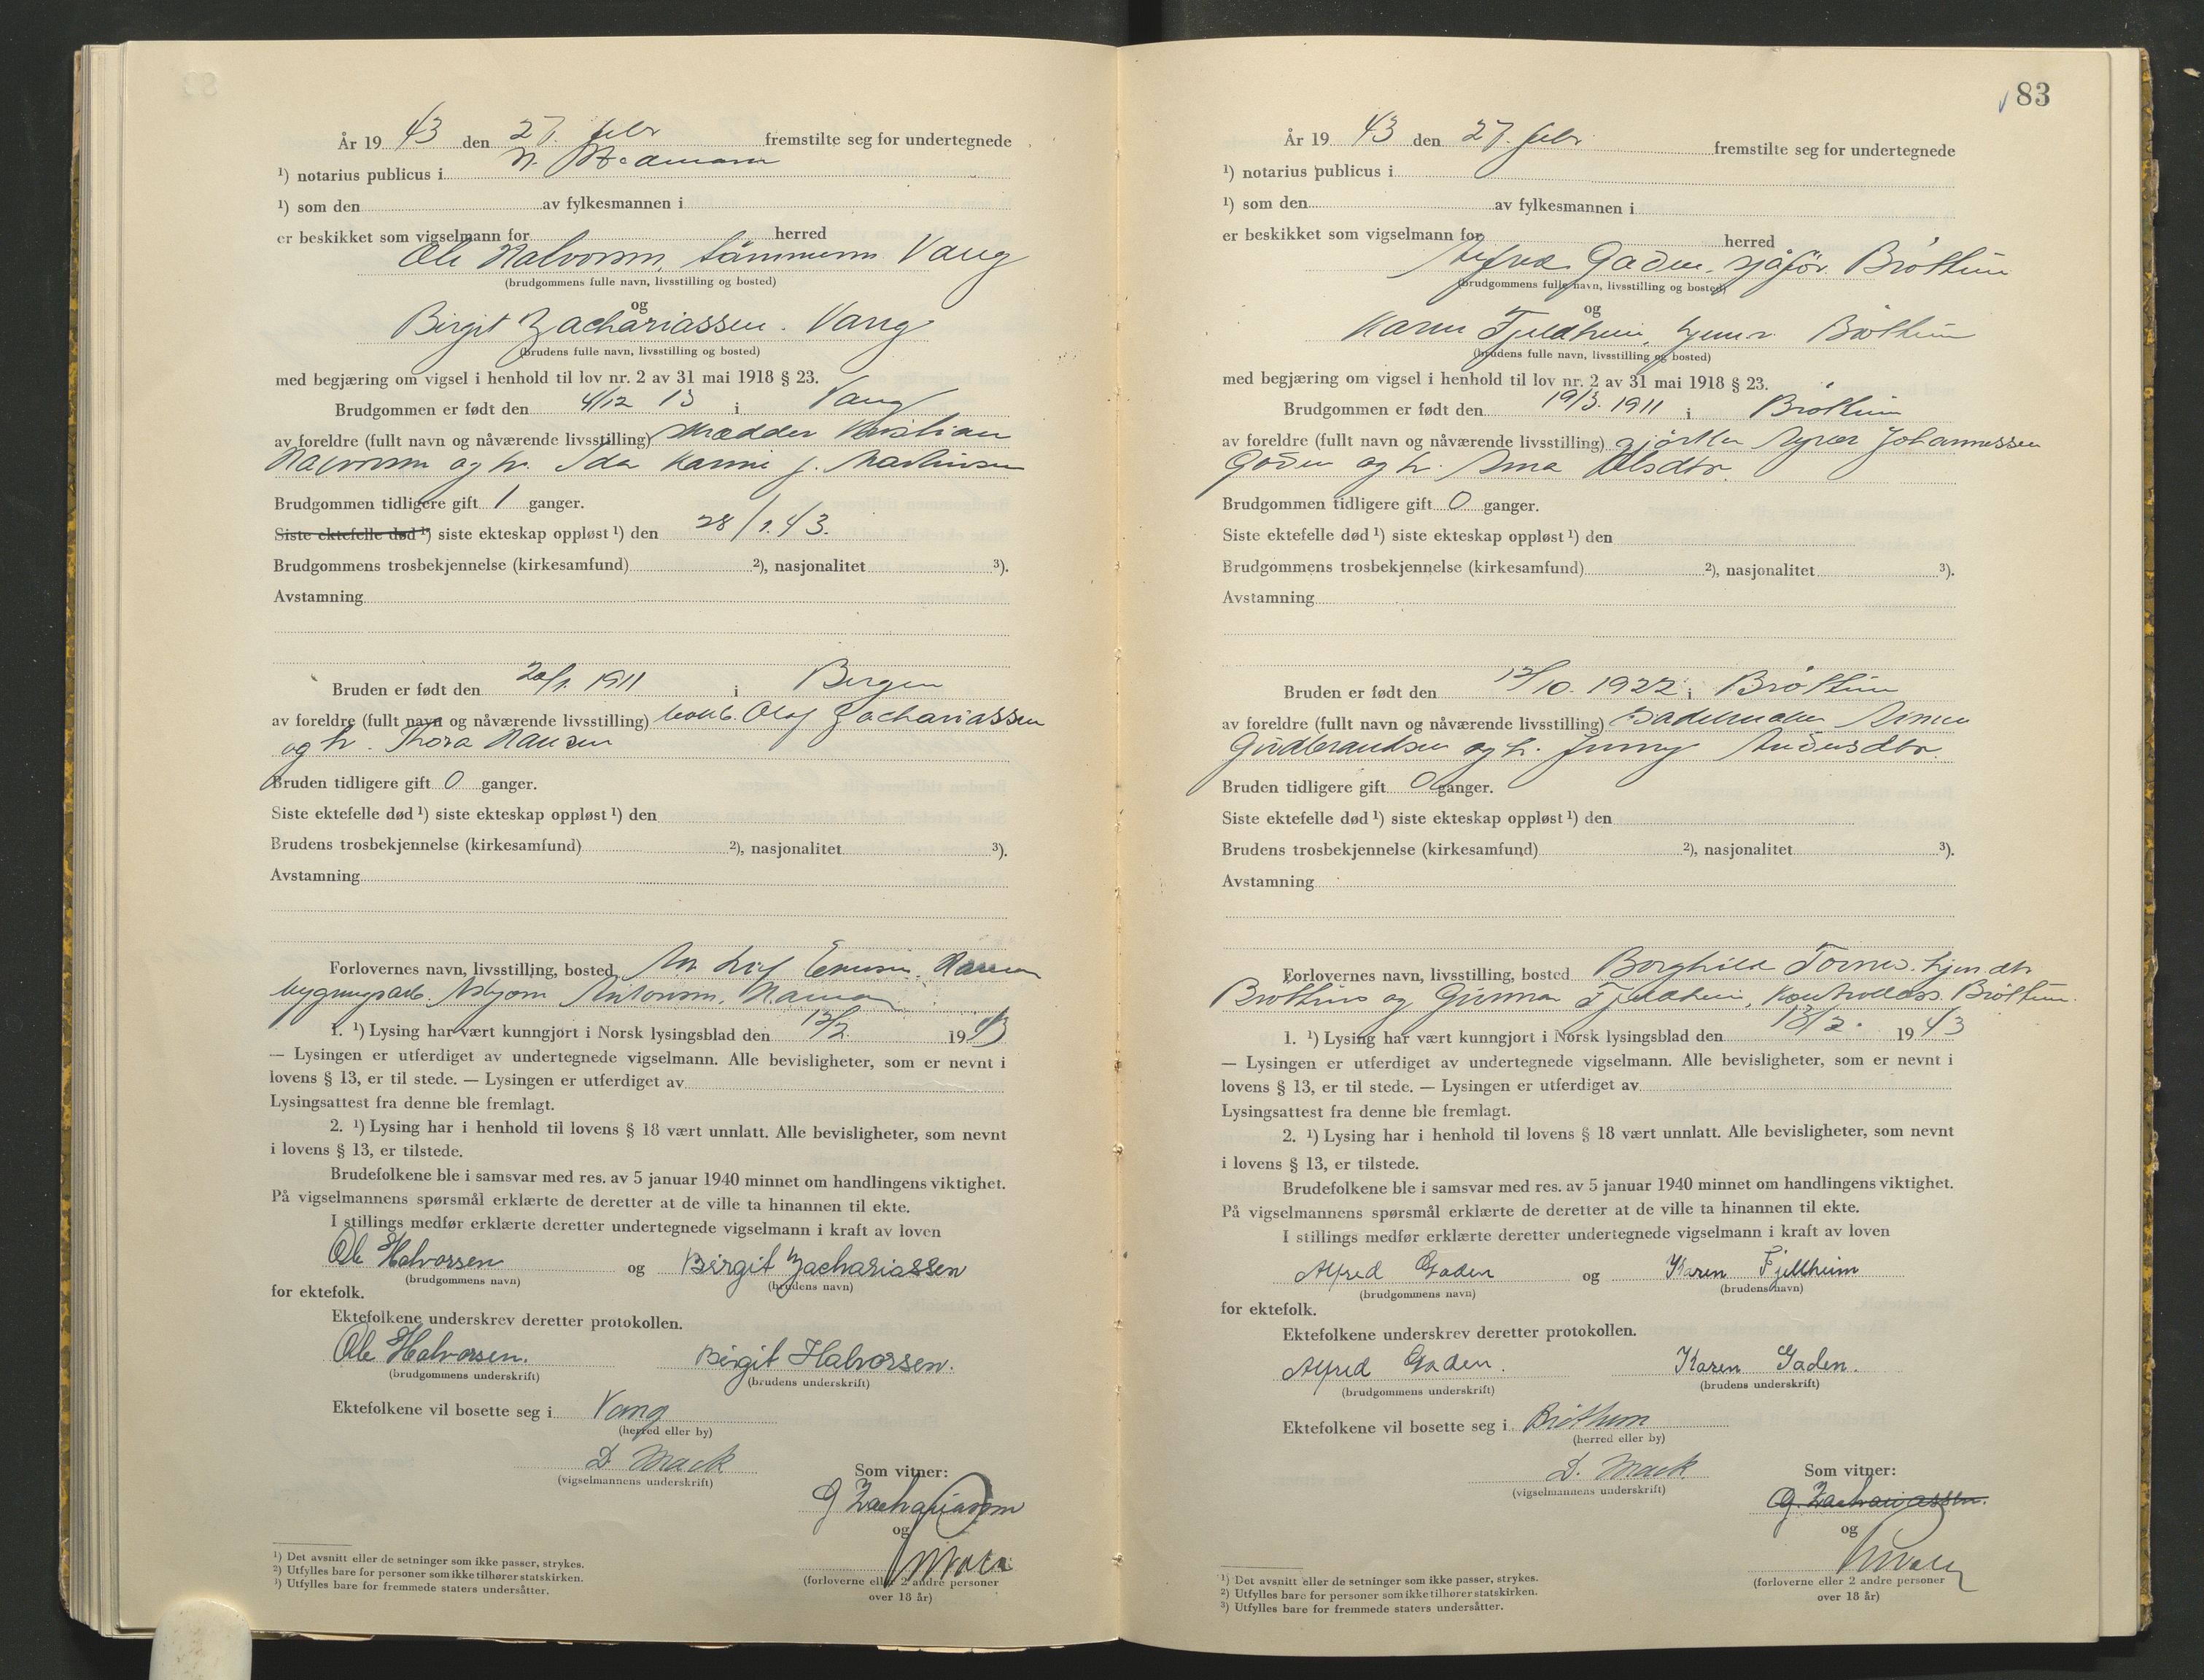 År 19 43 den 27. febr fremstilte seg for undertegnede
¹) notarius publicus i N. Hedmark
¹) som den av fylkesmannen i
er beskikket som vigselmann for herred
Ole Halvorsen, tømmerm. Vang
(brudgommens fulle navn, livsstilling og bosted)
og
Birgit Zachariassen. Vang
(brudens fulle navn, livsstilling og bosted)
med begjæring om vigsel i henhold til lov nr. 2 av 31 mai 1918 § 23.
Brudgommen er født den 4/12 13 i Vang
av foreldre (fullt navn og nåværende livsstilling) skredder Kristian
Halvorsen og h. Ida Karine f. Martinsen
Brudgommen tidligere gift 1 ganger.
Siste ektefelle død ¹) siste ekteskap oppløst ¹) den 28/1.43.
Brudgommens trosbekjennelse (kirkesamfund) ²), nasjonalitet ³).
Avstamning
Bruden er født den 20/1. 1911 i Bergen
av foreldre (fullt navn og nåværende livsstilling) Olaf Zachariassen
og h. Thora Hansen
Bruden tidligere gift 0 ganger.
Siste ektefelle død ¹) siste ekteskap oppløst ¹) den
Brudens trosbekjennelse (kirkesamfund) ²), nasjonalitet ³).
Avstamning
Forlovernes navn, livsstilling, bosted Leif Hamar
bygningsarb. Asbjørn Antonsen, Hamar
1. ¹) Lysing har vært kunngjort i Norsk lysingsblad den 12/2. 1943
— Lysingen er utferdiget av undertegnede vigselmann. Alle bevisligheter, som er nevnt i
lovens § 13, er til stede. — Lysingen er utferdiget av
Lysingsattest fra denne ble fremlagt.
2. ¹) Lysing har i henhold til lovens § 18 vært unnlatt. Alle bevisligheter, som nevnt
i lovens § 13, er tilstede.
Brudefolkene ble i samsvar med res. av 5 januar 1940 minnet om handlingens viktighet.
På vigselmannens spørsmål erklærte de deretter at de ville ta hinannen til ekte.
I stillings medfør erklærte deretter undertegnede vigselmann i kraft av loven
Ole Halvorsen og Birgit Zachariassen
(brudgommens navn) (brudens navn)
for ektefolk.
Ektefolkene underskrev deretter protokollen.
Ole Halvorsen. Birgit Halvorsen.
(brudgommens underskrift) (brudens underskrift)
Ektefolkene vil bosette seg i Vang
(herred eller by)
D. Mack
(vigselmannens underskrift)
Som vitner:
G Zachariassen
og
(forloverne eller 2 andre personer
over 18 år)
¹) Det avsnitt eller de setninger som ikke passer, strykes.
²) Utfylles bare for personer som ikke tilhører statskirken.
³) Utfylles bare for fremmede staters undersåtter.
83
År 19 43 den 27. febr fremstilte seg for undertegnede
¹) notarius publicus i
¹) som den av fylkesmannen i
er beskikket som vigselmann for herred
Alfred Gaden, sjåför Brøttum
(brudgommens fulle navn, livsstilling og bosted)
og
Karen Fjeldheim, Brøttum
(brudens fulle navn, livsstilling og bosted)
med begjæring om vigsel i henhold til lov nr. 2 av 31 mai 1918 § 23.
Brudgommen er født den 19/3. 1911 i Brøttum
av foreldre (fullt navn og nåværende livsstilling) Johannessen
Gaden og h. Olsdtr.
Brudgommen tidligere gift 0 ganger.
Siste ektefelle død ¹) siste ekteskap oppløst ¹) den
Brudgommens trosbekjennelse (kirkesamfund) ²), nasjonalitet ³).
Avstamning
Bruden er født den 12/10. 1922 i Brøttum
av foreldre (fullt navn og nåværende livsstilling) Simen
Gudbrandsen og h. Jenny Andersdtr.
Bruden tidligere gift 0 ganger.
Siste ektefelle død ¹) siste ekteskap oppløst ¹) den
Brudens trosbekjennelse (kirkesamfund) ²), nasjonalitet ³).
Avstamning
Forlovernes navn, livsstilling, bosted Borghild
Brøttum og Gunnar Fjeldheim, Brøttum.
1. ¹) Lysing har vært kunngjort i Norsk lysingsblad den 13/2. 1943
— Lysingen er utferdiget av undertegnede vigselmann. Alle bevisligheter, som er nevnt i
lovens § 13, er til stede. — Lysingen er utferdiget av
Lysingsattest fra denne ble fremlagt.
2. ¹) Lysing har i henhold til lovens § 18 vært unnlatt. Alle bevisligheter, som nevnt
i lovens § 13, er tilstede.
Brudefolkene ble i samsvar med res. av 5 januar 1940 minnet om handlingens viktighet.
På vigselmannens spørsmål erklærte de deretter at de ville ta hinannen til ekte.
I stillings medfør erklærte deretter undertegnede vigselmann i kraft av loven
Alfred Gaden og Karen Fjellheim
(brudgommens navn) (brudens navn)
for ektefolk.
Ektefolkene underskrev deretter protokollen.
Alfred Gaden. Karen Gaden.
(brudgommens underskrift) (brudens underskrift)
Ektefolkene vil bosette seg i Brøttum
(herred eller by)
D. Mack
(vigselmannens underskrift)
Som vitner:
G. Zachariassen.
og
(forloverne eller 2 andre personer
over 18 år)
¹) Det avsnitt eller de setninger som ikke passer, strykes.
²) Utfylles bare for personer som ikke tilhører statskirken.
³) Utfylles bare for fremmede staters undersåtter.